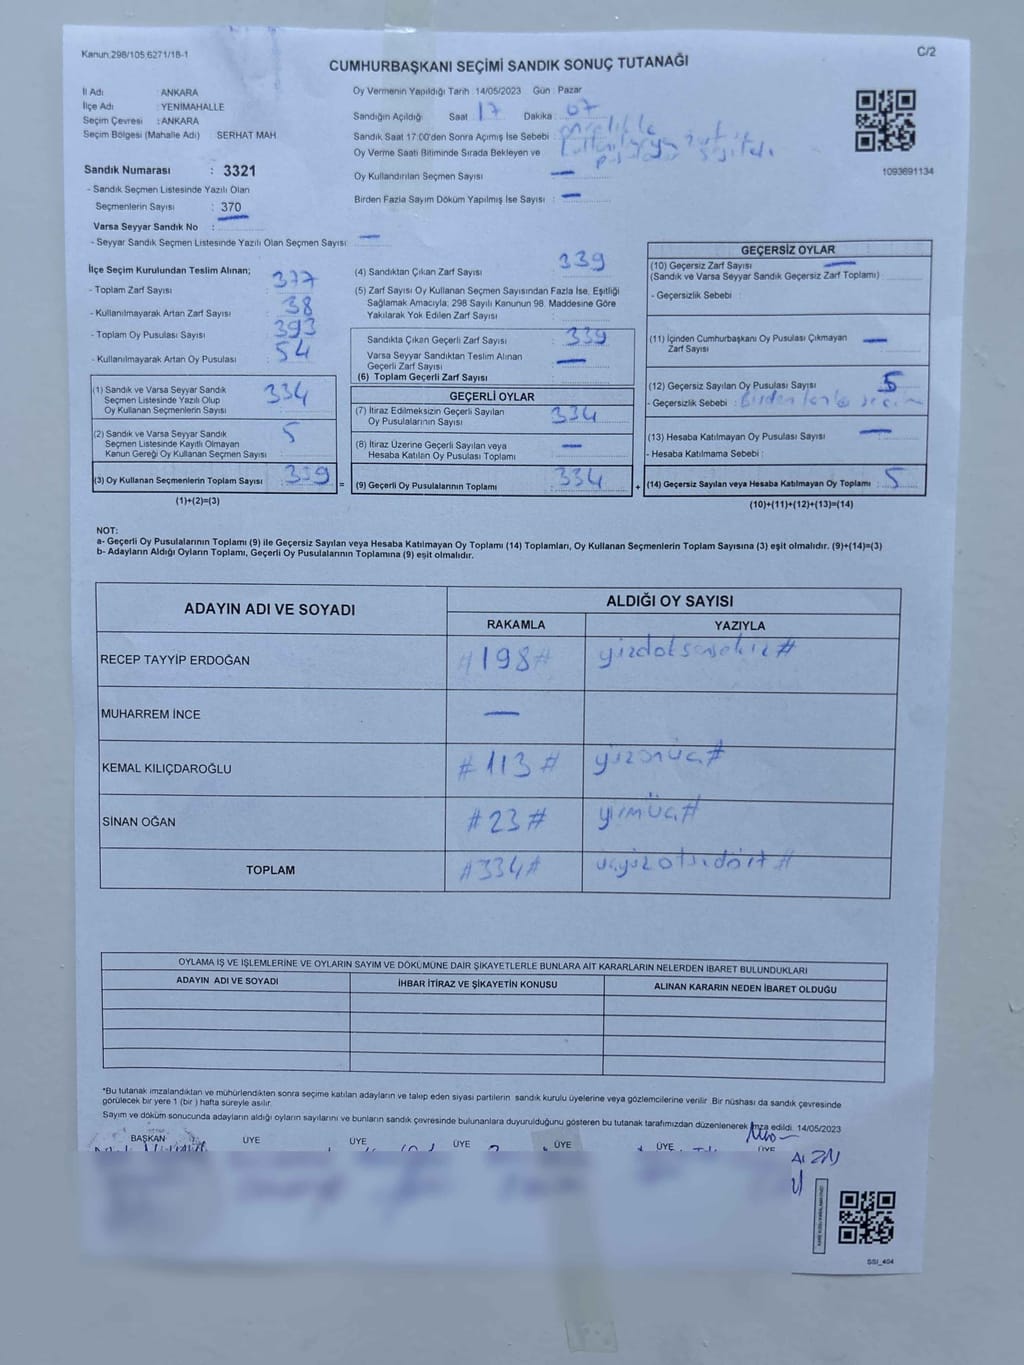 Kanun:298/105;6271/18-1
C/2
CUMHURBAŞKANI SEÇİMİ SANDIK SONUÇ TUTANAĞI
İl Adı : ANKARA
İlçe Adı : YENİMAHALLE
Seçim Çevresi : ANKARA
Seçim Bölgesi (Mahalle Adı) SERHAT MAH.
Sandık Numarası : 3321
- Sandık Seçmen Listesinde Yazılı Olan
Seçmenlerin Sayısı : 370
Varsa Seyyar Sandık No :
- Seyyar Sandık Seçmen Listesinde Yazılı Olan Seçmen Sayısı: —
Oy Vermenin Yapıldığı Tarih :14/05/2023 Gün : Pazar
Sandığın Açıldığı Saat : 17 Dakika : 07
Sandık Saat 17:00'den Sonra Açımış İse Sebebi :
Oy Verme Saati Bitiminde Sırada Bekleyen ve
Oy Kullandırılan Seçmen Sayısı : —
Birden Fazla Sayım Döküm Yapılmış İse Sayısı : —
1093691134
İlçe Seçim Kurulundan Teslim Alınan;
- Toplam Zarf Sayısı : 377
- Kullanılmayarak Artan Zarf Sayısı : 38
- Toplam Oy Pusulası Sayısı : 393
- Kullanılmayarak Artan Oy Pusulası : 54
(1) Sandık ve Varsa Seyyar Sandık
Seçmen Listesinde Yazılı Olup
Oy Kullanan Seçmenlerin Sayısı : 334
(2) Sandık ve Varsa Seyyar Sandık
Seçmen Listesinde Kayıtlı Olmayan
Kanun Gereği Oy Kullanan Seçmen Sayısı : 5
(3) Oy Kullanan Seçmenlerin Toplam Sayısı : 339
(1)+(2)=(3)
(4) Sandıktan Çıkan Zarf Sayısı : 339
(5) Zarf Sayısı Oy Kullanan Seçmen Sayısından Fazla İse, Eşitliği
Sağlamak Amacıyla; 298 Sayılı Kanunun 98. Maddesine Göre
Yakılarak Yok Edilen Zarf Sayısı :
Sandıkta Çıkan Geçerli Zarf Sayısı : 339
Varsa Seyyar Sandıktan Teslim Alınan
Geçerli Zarf Sayısı : —
(6) Toplam Geçerli Zarf Sayısı :
GEÇERLİ OYLAR
(7) İtiraz Edilmeksizin Geçerli Sayılan
Oy Pusulalarının Sayısı : 334
(8) İtiraz Üzerine Geçerli Sayılan veya
Hesaba Katılan Oy Pusulası Toplamı : —
= (9) Geçerli Oy Pusulalarının Toplamı : 334
GEÇERSİZ OYLAR
(10) Geçersiz Zarf Sayısı : —
(Sandık ve Varsa Seyyar Sandık Geçersiz Zarf Toplamı)
- Geçersizlik Sebebi :
(11) İçinden Cumhurbaşkanı Oy Pusulası Çıkmayan
Zarf Sayısı : —
(12) Geçersiz Sayılan Oy Pusulası Sayısı : 5
- Geçersizlik Sebebi : Birden fazla seçim
(13) Hesaba Katılmayan Oy Pusulası Sayısı : —
- Hesaba Katılmama Sebebi :
+ (14) Geçersiz Sayılan veya Hesaba Katılmayan Oy Toplamı : 5
(10)+(11)+(12)+(13)=(14)
NOT:
a- Geçerli Oy Pusulalarının Toplamı (9) ile Geçersiz Sayılan veya Hesaba Katılmayan Oy Toplamı (14) Toplamları, Oy Kullanan Seçmenlerin Toplam Sayısına (3) eşit olmalıdır. (9)+(14)=(3)
b- Adayların Aldığı Oyların Toplamı, Geçerli Oy Pusulalarının Toplamına (9) eşit olmalıdır.
ADAYIN ADI VE SOYADI
ALDIĞI OY SAYISI
RAKAMLA YAZIYLA
RECEP TAYYİP ERDOĞAN #198# yüzdoksansekiz#
MUHARREM İNCE —
KEMAL KILIÇDAROĞLU #113# yüzonüç#
SİNAN OĞAN #23# yirmüç#
TOPLAM #334# üçyüzotuzdört#
OYLAMA İŞ VE İŞLEMLERİNE VE OYLARIN SAYIM VE DÖKÜMÜNE DAİR ŞİKAYETLERLE BUNLARA AİT KARARLARIN NELERDEN İBARET BULUNDUKLARI
ADAYIN ADI VE SOYADI İHBAR İTİRAZ VE ŞİKAYETİN KONUSU ALINAN KARARIN NEDEN İBARET OLDUĞU
*Bu tutanak imzalandıktan ve mühürlendikten sonra seçime katılan adayların ve talep eden siyasi partilerin sandık kurulu üyelerine veya gözlemcilerine verilir. Bir nüshası da sandık çevresinde
görülecek bir yere 1 (bir ) hafta süreyle asılır.
Sayım ve döküm sonucunda adayların aldığı oyların sayılarını ve bunların sandık çevresinde bulunanlara duyurulduğunu gösteren bu tutanak tarafımızdan düzenlenerek imza edildi. 14/05/2023
BAŞKAN ÜYE ÜYE ÜYE ÜYE ÜYE ÜYE
SSI_404